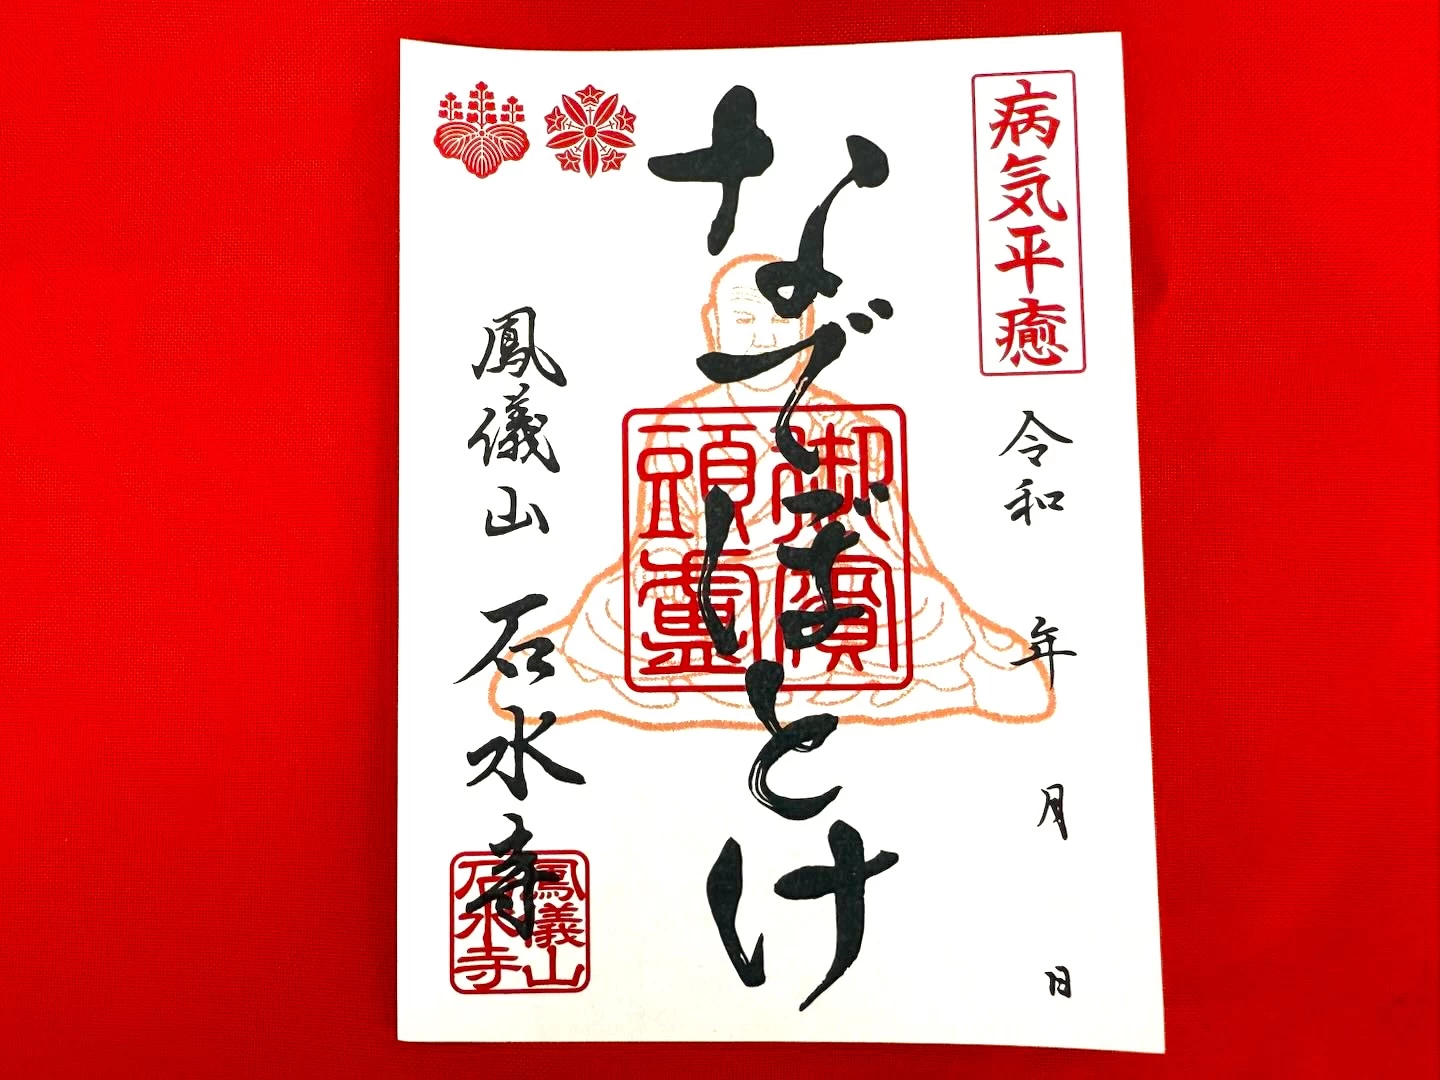 病気平癒
令和 年 月 日
なでぼとけ
御賓
頭盧
鳳儀山 石水寺
鳳儀山
石水寺